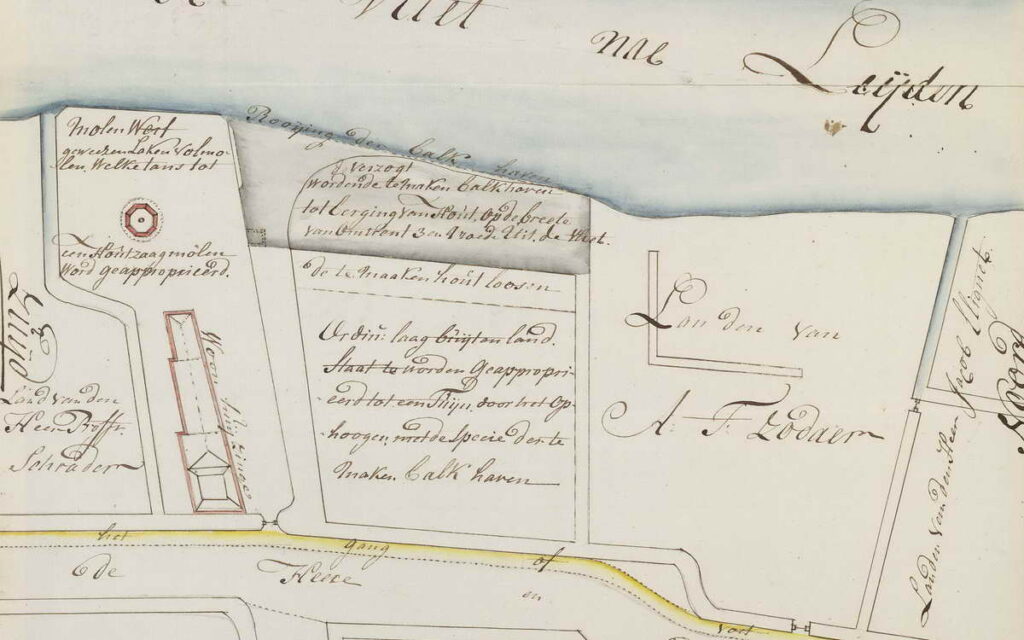 Vliet
na
Leijden
Molen Werf
geweezen Laken Volmo-
len, Welke tans tot
een Houtzaagmolen
Word geapproprieerd.
Rooijing der balk haven
verzogt
wordende te maken balkhaven
tot berging van Hout, op de breete
van omtrent 3 en 4 roede uit de Vliet.
de te maaken hout loosen
Ordin: laag buijten land.
Staat te worden Geappropri-
eerd tot een Thuijn door het op-
hoogen, met de Specie der te
maken balk haven
Landen van
A. F. Zodaer
Land van den
Heer Proffr.
Schrader
Zuijd
Woon
Landen van den Heer Jacob
Noord
het gang of voet
de Heere en